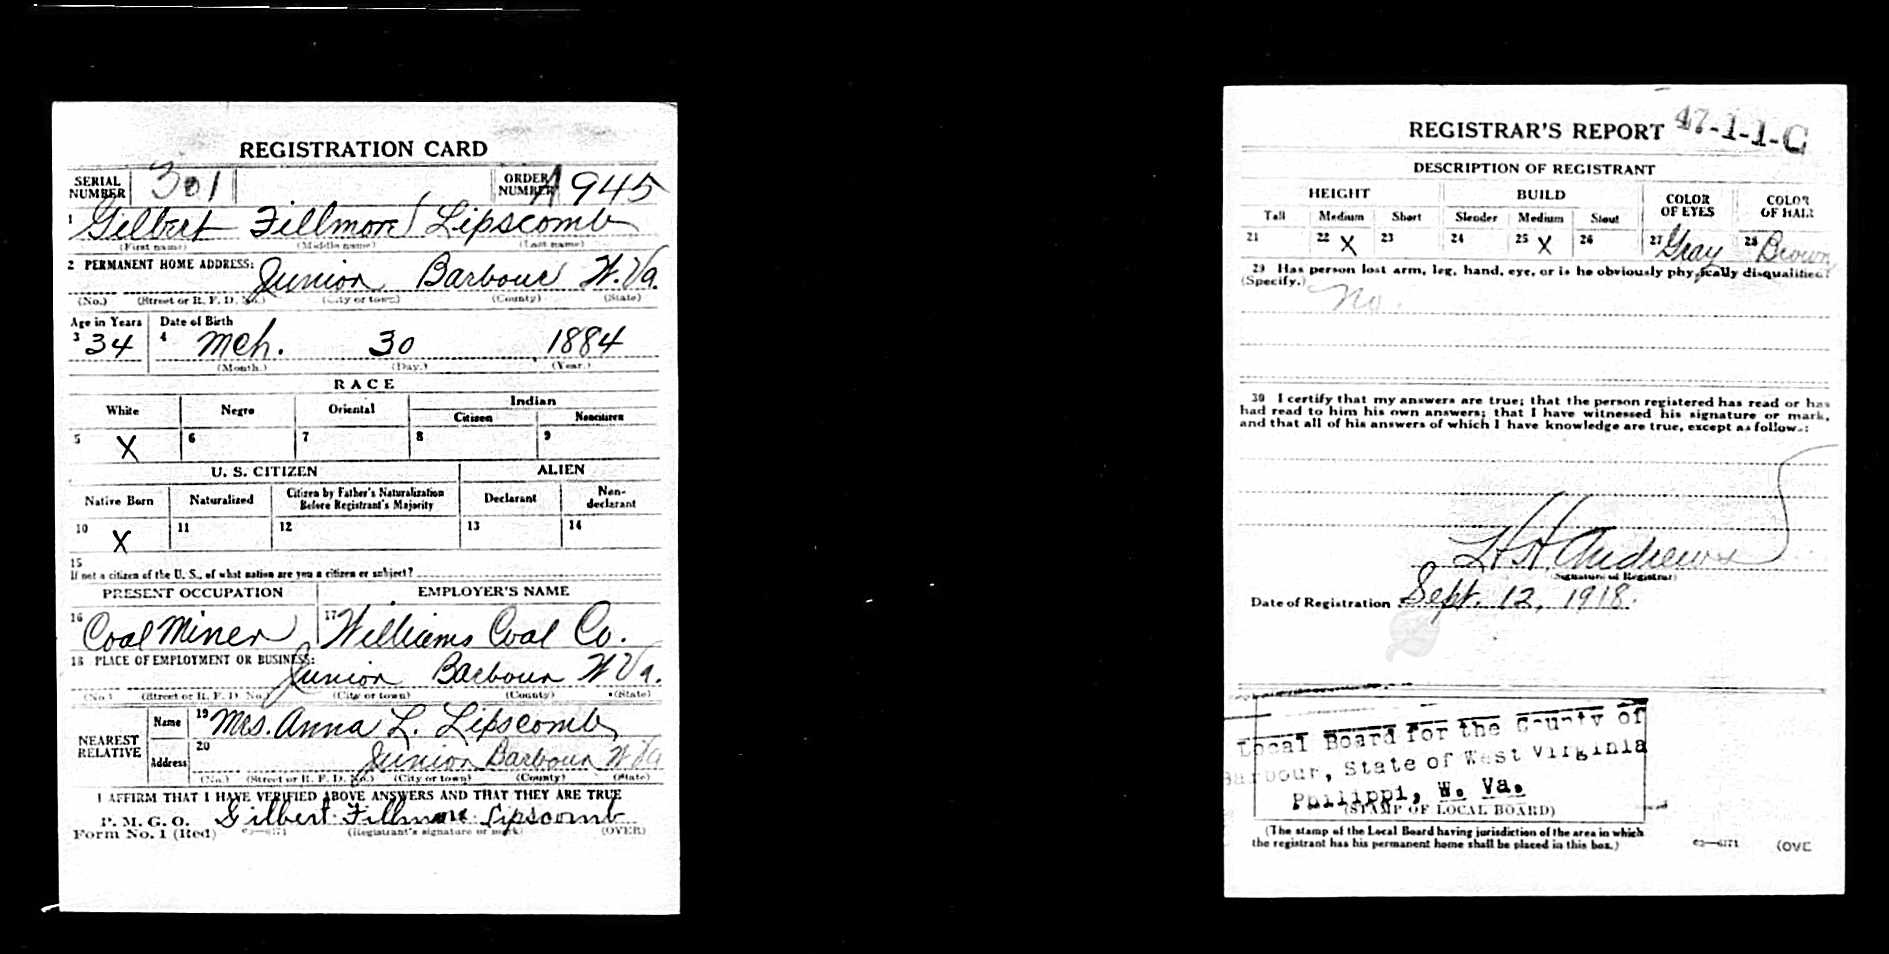 REGISTRATION CARD
SERIAL NUMBER 301 ORDER NUMBER A 945
1 Gilbert Fillmore Lipscomb
(First name) (Middle name) (Last name)
2 PERMANENT HOME ADDRESS: Junior Barbour W. Va.
(No.) (Street or R. F. D. No.) (City or town) (County) (State)
Age in Years Date of Birth
3 34 4 Mch. 30 1884
(Month.) (Day.) (Year.)
RACE
White Negro Oriental Indian
Citizen Noncitizen
5 X 6 7 8 9
U. S. CITIZEN ALIEN
Native Born Naturalized Citizen by Father's Naturalization Before Registrant's Majority Declarant Non-declarant
10 X 11 12 13 14
15
If not a citizen of the U. S., of what nation are you a citizen or subject?
PRESENT OCCUPATION EMPLOYER'S NAME
16 Coal Miner 17 Williams Coal Co.
18 PLACE OF EMPLOYMENT OR BUSINESS:
Junior Barbour W Va.
(No.) (Street or R. F. D. No.) (City or town) (County) (State)
NEAREST RELATIVE Name 19 Mrs. Anna L. Lipscomb
Address 20 Junior Barbour W Va
(No.) (Street or R. F. D. No.) (City or town) (County) (State)
I AFFIRM THAT I HAVE VERIFIED ABOVE ANSWERS AND THAT THEY ARE TRUE
P. M. G. O.
Form No. 1 (Red) Gilbert Fillmore Lipscomb
(Registrant's signature or mark) (OVER)
REGISTRAR'S REPORT 47-1-1-C
DESCRIPTION OF REGISTRANT
HEIGHT BUILD COLOR OF EYES COLOR OF HAIR
Tall Medium Short Slender Medium Stout
21 22 X 23 24 25 X 26 27 Gray 28 Brown
29 Has person lost arm, leg, hand, eye, or is he obviously physically disqualified?
(Specify.) No.
30 I certify that my answers are true; that the person registered has read or has
had read to him his own answers; that I have witnessed his signature or mark,
and that all of his answers of which I have knowledge are true, except as follows:
Andrews
(Signature of Registrar)
Date of Registration Sept. 12, 1918.
Local Board for the County of
Barbour, State of West Virginia
Philippi, W. Va.
(STAMP OF LOCAL BOARD)
(The stamp of the Local Board having jurisdiction of the area in which
the registrant has his permanent home shall be placed in this box.)
(OVE